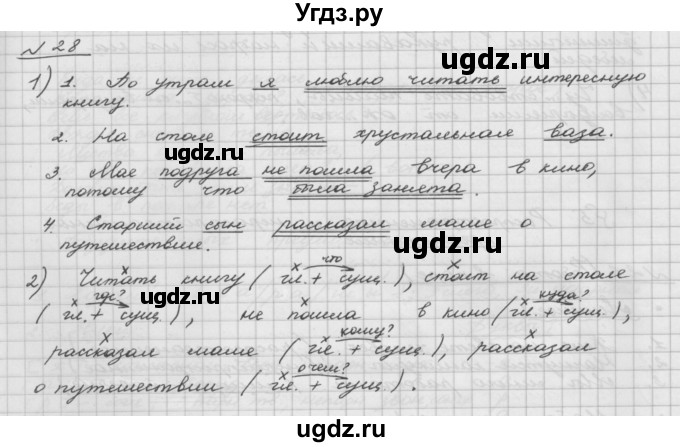 Угдз.ру
№ 28
1) 1. По утрам я люблю читать интересную
книгу.
2. На столе стоит хрустальная ваза.
3. Моя подруга не пошла вчера в кино,
потому что была занята.
4. Старший сын рассказал маме о
путешествие.
2) Читать книгу (гл. + сущ.), стоит на столе
что
(гл. + сущ.), не пошла в кино (гл. + сущ.),
где? куда?
рассказал маме (гл. + сущ.), рассказал
кому?
о путешествии (гл. + сущ.).
о чем?
ugdz.ru
ugdz.ru
ugdz.ru
ugdz.ru
ugdz.ru
ugdz.ru
ugdz.ru
ugdz.ru